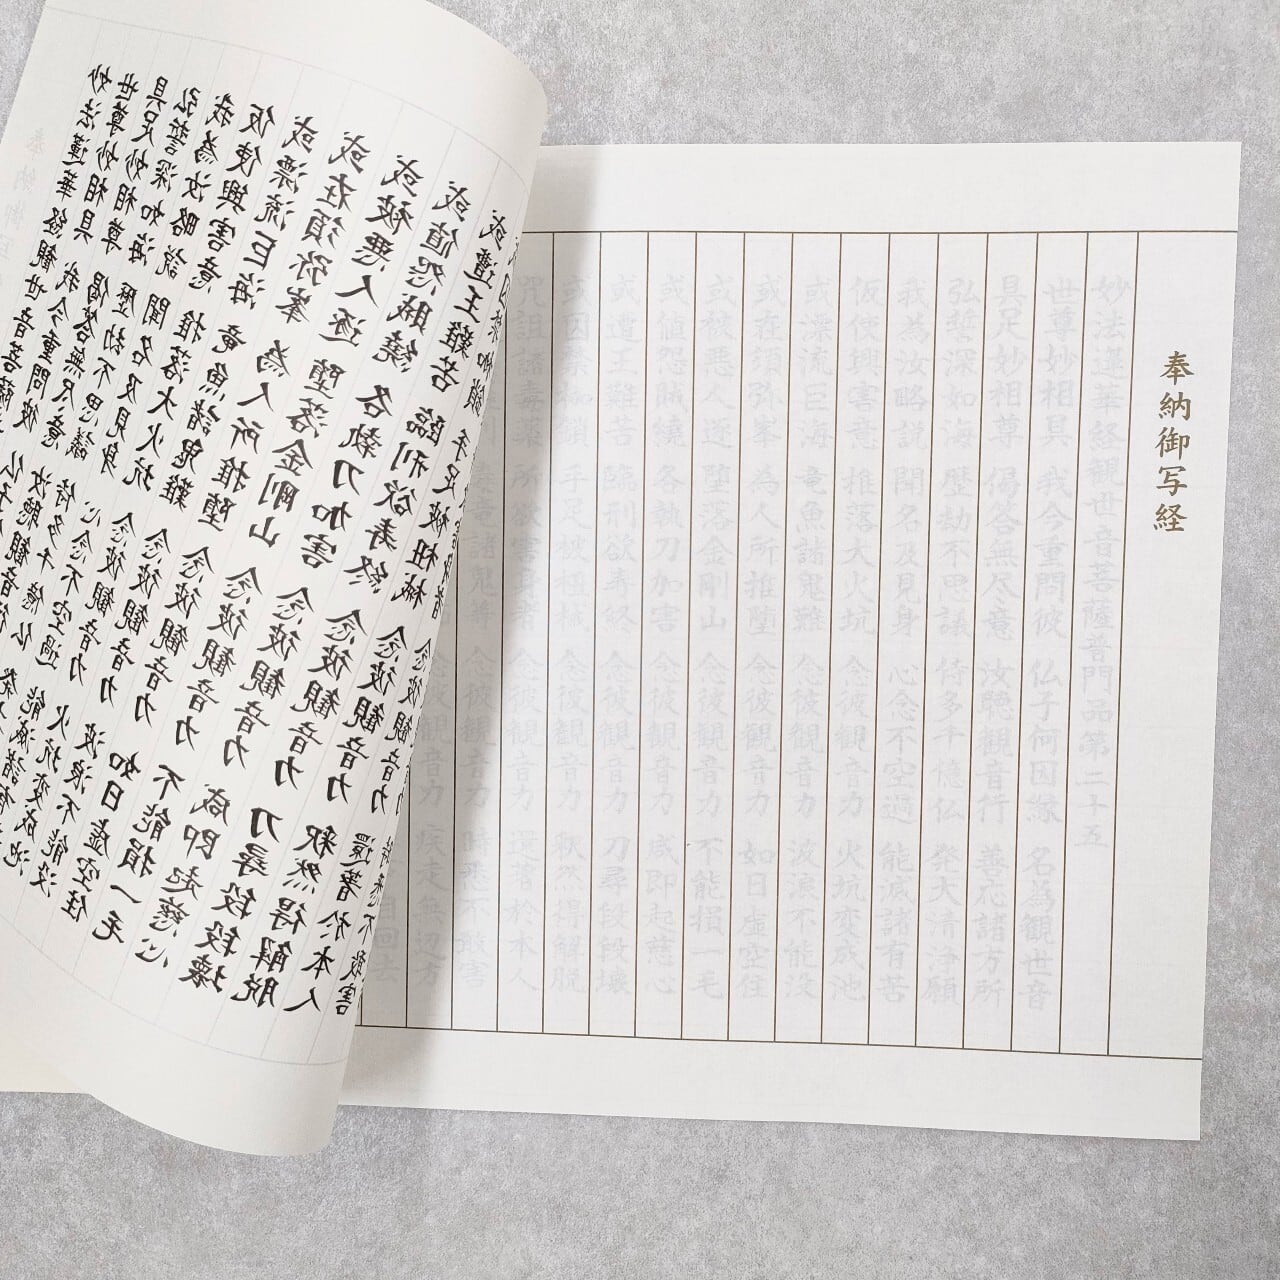 奉納御写経
妙法蓮華経観世音菩薩普門品第二十五
世尊妙相具 我今重問彼 仏子何因縁 名為観世音
具足妙相尊 偈答無尽意 汝聴観音行 善応諸方所
弘誓深如海 歴劫不思議 侍多千億仏 発大清浄願
我為汝略説 聞名及見身 心念不空過 能滅諸有苦
仮使興害意 推落大火坑 念彼観音力 火坑変成池
或漂流巨海 竜魚諸鬼難 念彼観音力 波浪不能没
或在須弥峯 為人所推堕 念彼観音力 如日虚空住
或被悪人逐 堕落金剛山 念彼観音力 不能損一毛
或値怨賊繞 各執刀加害 念彼観音力 咸即起慈心
或遭王難苦 臨刑欲寿終 念彼観音力 刀尋段段壊
或囚禁枷鎖 手足被杻械 念彼観音力 釈然得解脱
呪詛諸毒薬 所欲害身者 念彼観音力 還著於本人
毒竜諸鬼等 念彼観音力 時悉不敢害
念彼観音力 疾走無辺方
自回去
妙法蓮華経観世音菩薩
世尊妙相具 我今重問彼 仏子
具足妙相尊 偈答無尽意 汝聴観音行
弘誓深如海 歴劫不思議 侍多千億仏 発
我為汝略説 聞名及見身 心念不空過 能滅諸有
仮使興害意 推落大火坑 念彼観音力 火坑変成池
或漂流巨海 竜魚諸鬼難 念彼観音力 波浪不能没
或在須弥峯 為人所推堕 念彼観音力 如日虚空住
或被悪人逐 堕落金剛山 念彼観音力 不能損一毛
或値怨賊繞 各執刀加害 念彼観音力 咸即起慈心
或遭王難苦 臨刑欲寿終 念彼観音力 刀尋段段壊
手足被杻械 念彼観音力 釈然得解脱
念彼観音力 還著於本人
不敢害